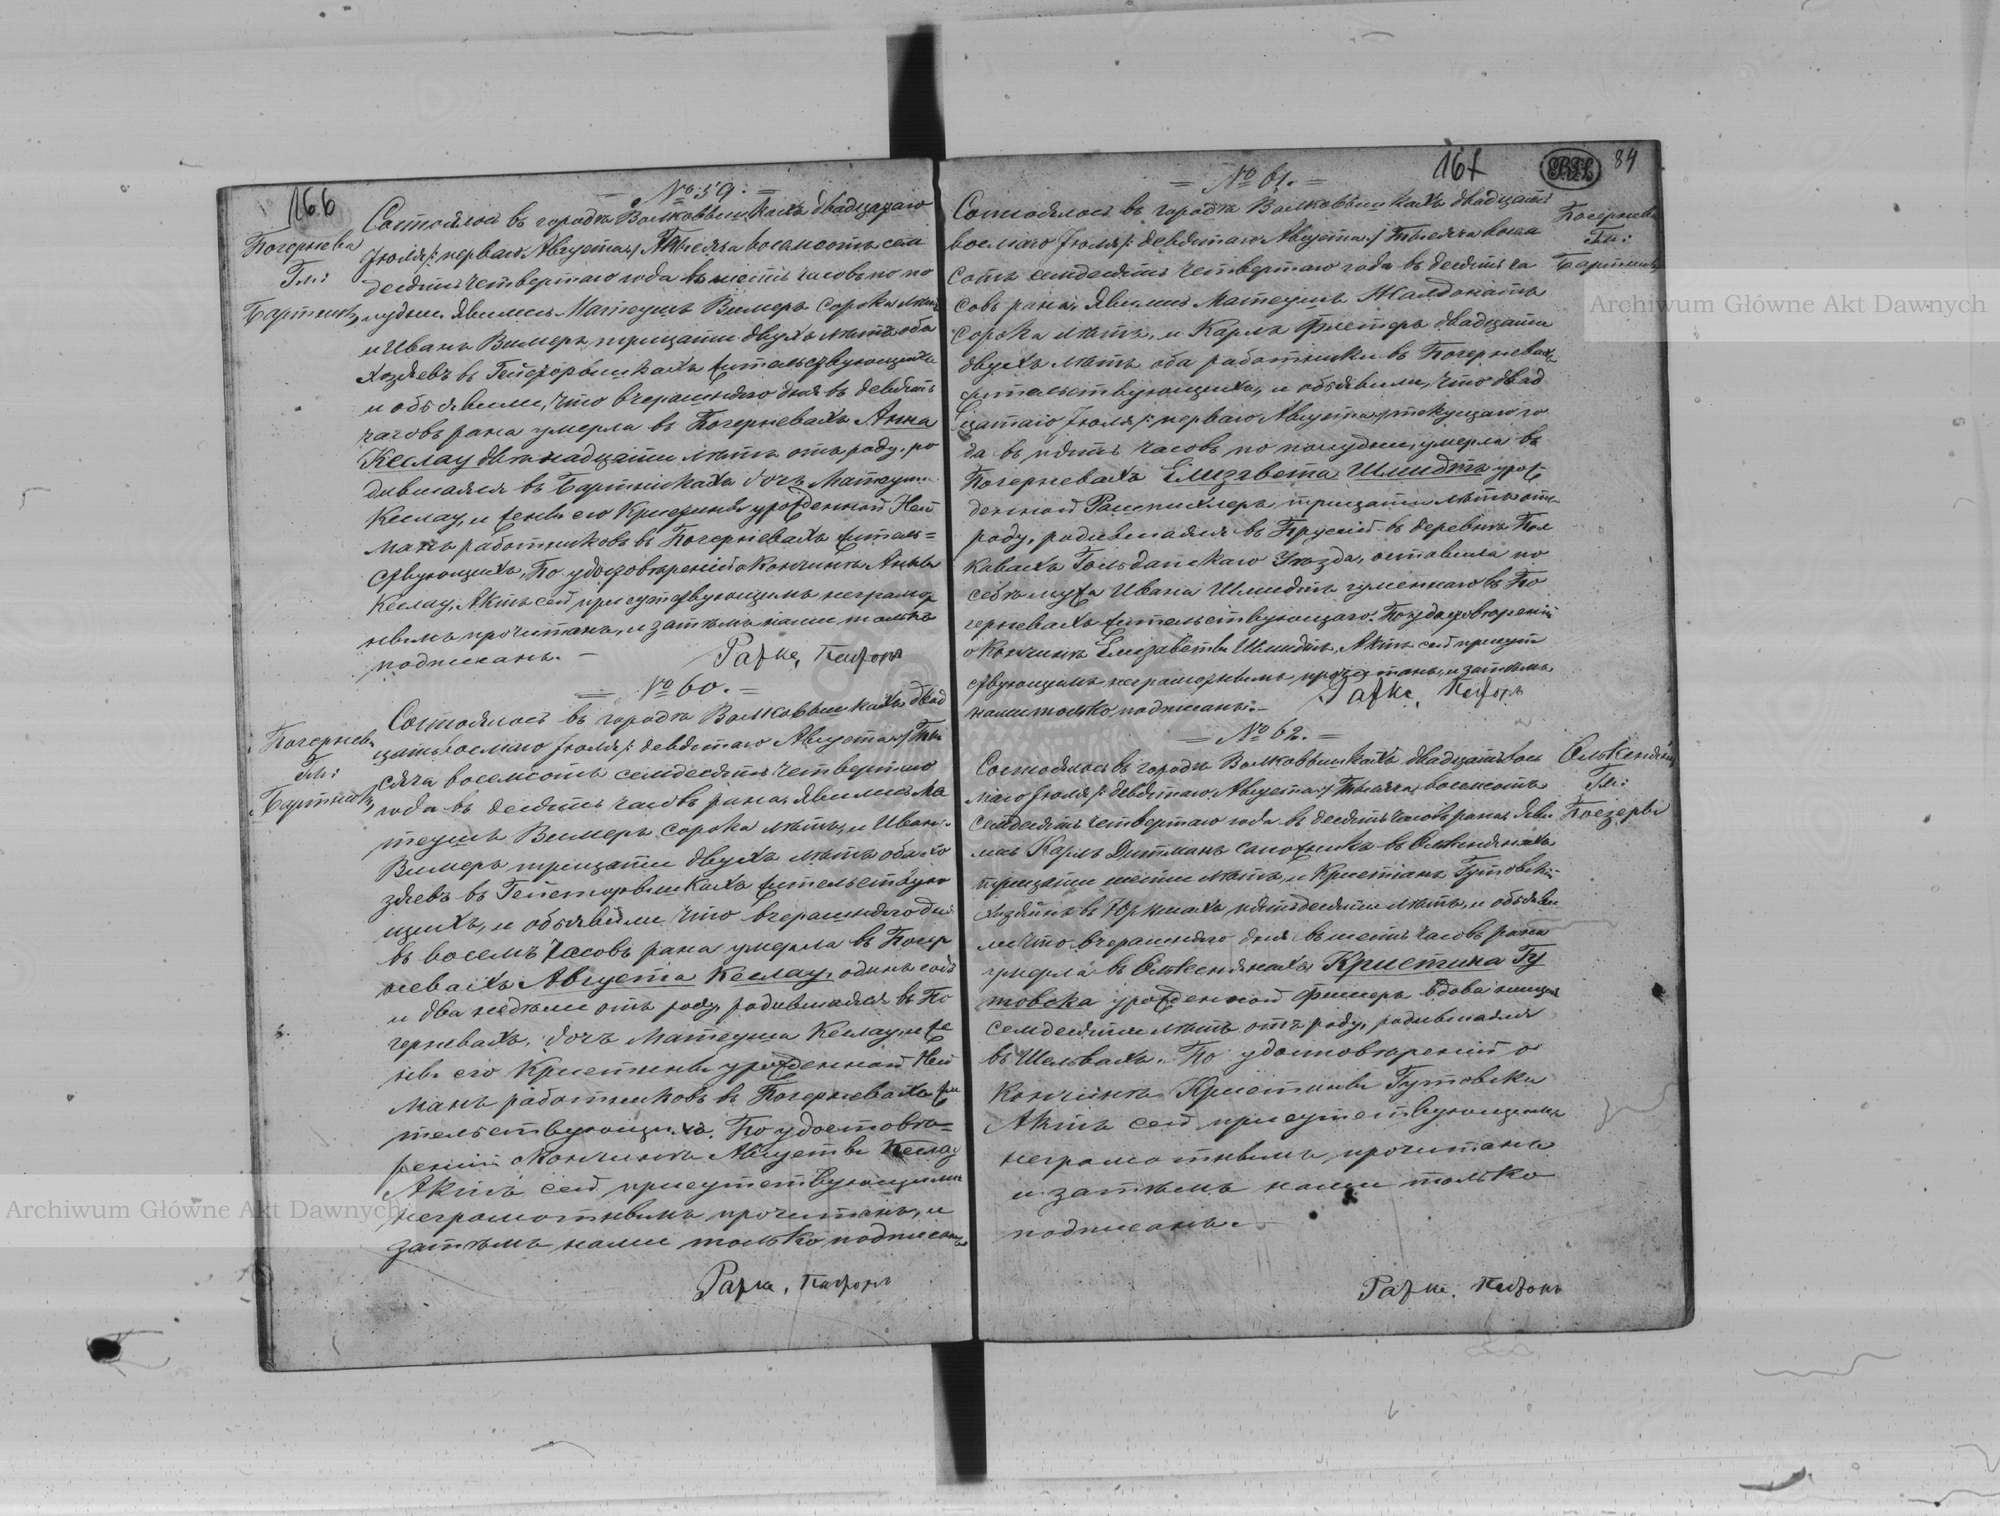 166
№ 59.
Состоялось въ городѣ Волковышкахъ двадцатаго
Погернева
Гм:
Бартники
Іюля /: перваго Августа :/ Тысяча восемьсотъ семь
десятъ четвертаго года въ шесть часовъ по по
лудни. Явились Матеушъ Вимеръ сорока лѣтъ
и Иванъ Вимеръ тридцати двухъ лѣтъ оба
хозяевъ въ жительствующіи
и объявили, что вчерашняго дня въ девять
часовъ рана умерла въ Погерневахъ Анна
Кеслау двѣнадцати лѣтъ отъ роду, ро
дившаяся въ Бартникахъ дочь Матеуша
Кеслау, и жены его Кристины урожденной Ней
манъ работниковъ въ Погерневахъ житель=
ствующихъ. По удостовѣреніи о кончинѣ Анны
Кеслау, Актъ сей присутствующимъ неграмот
нымъ прочитанъ, и затѣмъ нами только
подписанъ. –
№ 60.
Состоялось въ городѣ Волковышкахъ двад
Погернева
Гм:
Бартники
цать восьмаго Іюля /: девятаго Августа :/ Ты
сяча восемсотъ семдесятъ четвертаго
года въ десять часовъ рана, Явились Ма
теушъ Вимеръ сорока лѣтъ, и Иванъ
Вимеръ тридцати двухъ лѣтъ оба хо
зяевъ въ жительствую
щихъ, и объявили что вчерашняго дня
въ восемъ часовъ рана умерла въ Погер
невахъ Августа Кеслау, одинъ годъ
и два недѣли отъ роду, родившаяся въ По
герневахъ, дочь Матеуша Кеслау, и же
ны его Кристины урожденной Ней
манъ работниковъ въ Погерневахъ жи
тельствующихъ. По удостовѣ=
реніи о кончинѣ Августы Кеслау
Актъ сей присутствующимъ
неграмотнымъ прочитанъ, и
затѣмъ нами только подписанъ
167
84
№ 61.
Состоялось въ городѣ Волковышкахъ двадцать
Погернева
Гм:
Бартники
восьмаго Іюля /: девятаго Августа :/ Тысяча восем
сотъ семдесятъ четвертаго года въ десять ча
совъ рана, Явились Матеушъ
сорока лѣтъ, и Карлъ двадцати
двухъ лѣтъ оба работники въ Погерневахъ
жительствующихъ, и объявили, что двад
цатаго Іюля /: перваго Августа :/ текущаго го
да въ пять часовъ по полудни, умерла въ
Погерневахъ Елизавета Шмидтъ урож
денной тридцати лѣтъ отъ
роду, родившаяся въ Прусіи въ деревнѣ
Гольдапскаго Уѣзда, оставила по
себѣ мужа Ивана Шмидтъ въ По
герневахъ жительствующаго. По удостовѣреніи
о кончинѣ Елизаветы Шмидтъ, Актъ сей присут
ствующимъ неграмотнымъ прочитанъ, и затѣмъ
нами только подписанъ. –
№ 62.
Состоялось въ городѣ Волковышкахъ двадцать вось
Гм:
маго Іюля /: девятаго Августа :/ Тысяча восемсотъ
семдесятъ четвертаго года въ десять часовъ рана, Яви
лись Карлъ Дитманъ сапожникъ въ
тридцати шести лѣтъ, и Кристіанъ Гутовскі
хозяинъ въ пятьдесяти лѣтъ, и объяви
ли что вчерашняго дня въ шесть часовъ рана
умерла въ Кристина Гу
товска урожденной Фишеръ вдова нища
семдесяти лѣтъ отъ роду, родившаяся
въ Шельвахъ. По удостовѣреніи о
кончинѣ Кристины Гутовски
Актъ сей присутствующимъ
неграмотнымъ прочитанъ
и затѣмъ нами только
подписанъ.
Archiwum Główne Akt Dawnych
Archiwum Główne Akt Dawnych